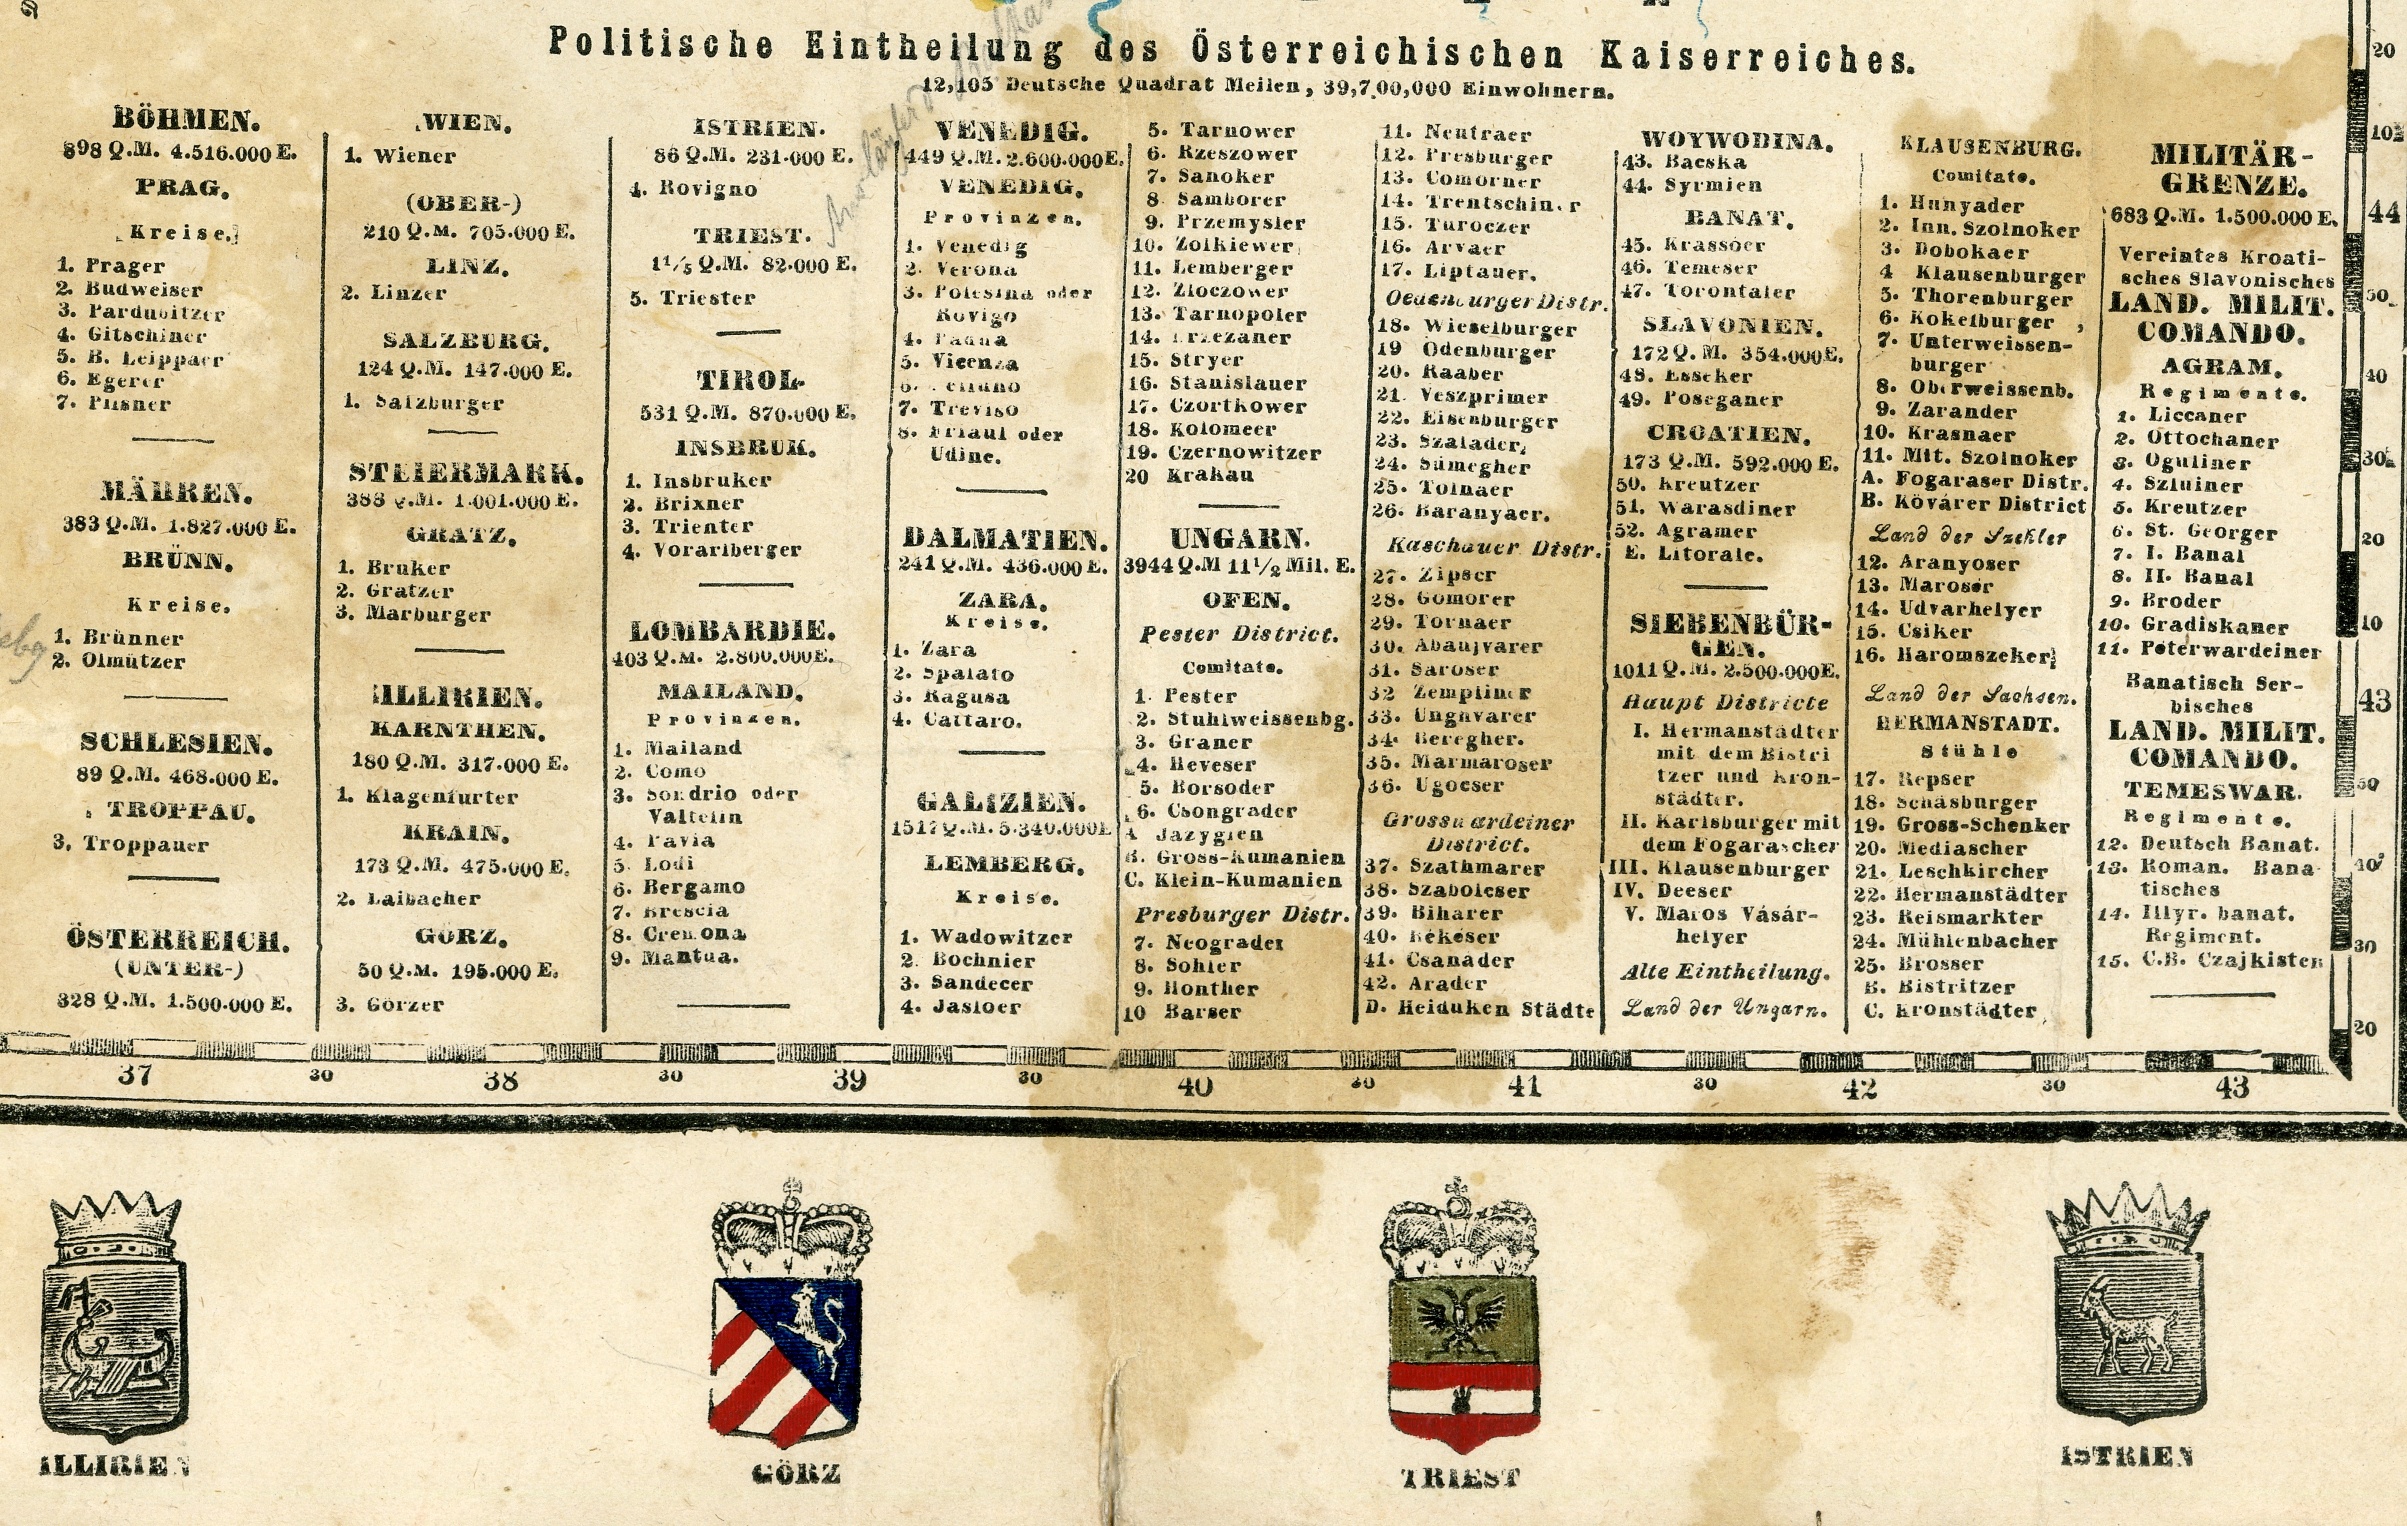 Politische Eintheilung des Österreichischen Kaiserreiches.
12,105 Deutsche Quadrat Meilen, 39,7,00,000 Einwohnern.
BÖHMEN.
898 Q.M. 4.516.000 E.
PRAG.
Kreise.
1. Prager
2. Budweiser
3. Pardubitzer
4. Gitschiner
5. B. Leippaer
6. Egerer
7. Pilsner
MÄHREN.
383 Q.M. 1.827.000 E.
BRÜNN.
Kreise.
1. Brünner
2. Olmützer
SCHLESIEN.
89 Q.M. 468.000 E.
TROPPAU.
3. Troppauer
ÖSTERREICH.
(UNTER-)
328 Q.M. 1.500.000 E.
WIEN.
1. Wiener
(OBER-)
210 Q.M. 705.000 E.
LINZ.
2. Linzer
SALZBURG.
124 Q.M. 147.000 E.
1. Salzburger
STEIERMARK.
388 Q.M. 1.001.000 E.
GRATZ.
1. Bruker
2. Gratzer
3. Marburger
ILLIRIEN.
KARNTHEN.
180 Q.M. 317.000 E.
1. Klagenfurter
KRAIN.
173 Q.M. 475.000 E.
2. Laibacher
GÖRZ.
50 Q.M. 195.000 E.
3. Görzer
ISTRIEN.
86 Q.M. 231.000 E.
4. Rovigno
TRIEST.
1 1/5 Q.M. 82.000 E.
5. Triester
TIROL.
531 Q.M. 870.000 E.
INSBRUK.
1. Insbruker
2. Brixner
3. Trienter
4. Vorarlberger
LOMBARDIE.
403 Q.M. 2.800.000 E.
MAILAND.
Provinzen.
1. Mailand
2. Como
3. Sondrio oder
Valtelin
4. Pavia
5. Lodi
6. Bergamo
7. Brescia
8. Cremona
9. Mantua.
VENEDIG.
449 Q.M. 2.600.000 E.
VENEDIG.
Provinzen.
1. Venedig
2. Verona
3. Polesina oder
Rovigo
4. Padua
5. Vicenza
6. Belluno
7. Treviso
8. Friaul oder
Udine.
DALMATIEN.
241 Q.M. 436.000 E.
ZARA.
Kreise.
1. Zara
2. Spalato
3. Ragusa
4. Cattaro.
GALIZIEN.
1517 Q.M. 5.340.000 E
LEMBERG.
Kreise.
1. Wadowitzer
2. Bochnier
3. Sandecer
4. Jasloer
5. Tarnower
6. Rzeszower
7. Sanoker
8. Samborer
9. Przemysler
10. Zolkiewer
11. Lemberger
12. Zloczower
13. Tarnopoler
14. Brzezaner
15. Stryer
16. Stanislauer
17. Czortkower
18. Kolomeer
19. Czernowitzer
20 Krakau
UNGARN.
3944 Q.M 11 1/2 Mil. E.
OFEN.
Pester District.
Comitate.
1. Pester
2. Stuhlweissenbg.
3. Graner
4. Heveser
5. Borsoder
6. Csongrader
A Jazygien
B. Gross-Kumanien
C. Klein-Kumanien
Presburger Distr.
7. Neograder
8. Sohler
9. Honther
10 Barser
11. Neutraer
12. Presburger
13. Comorner
14. Trentschiner
15. Turoczer
16. Arvaer
17. Liptauer.
Oedenburger Distr.
18. Wieselburger
19 Odenburger
20. Raaber
21. Veszprimer
22. Eisenburger
23. Szalader
24. Sümegher
25. Tolnaer
26. Baranyaer.
Kaschauer Distr.
27. Zipser
28. Gömörer
29. Tornaer
30. Abaujvarer
31. Saroser
32 Zempliner
33. Unghvarer
34. Beregher.
35. Marmaroser
36. Ugocser
Grosswardeiner
District.
37. Szathmarer
38. Szabolcser
39. Biharer
40. Békéser
41. Csanader
42. Arader
D. Heiduken Städte
WOYWODINA.
43. Bacska
44. Syrmien
BANAT.
45. Krassóer
46. Temeser
47. Torontaler
SLAVONIEN.
172 Q.M. 354.000 E.
48. Esseker
49. Poseganer
CROATIEN.
173 Q.M. 592.000 E.
50. Kreutzer
51. Warasdiner
52. Agramer
E. Litorale.
SIEBENBÜR-
GEN.
1011 Q.M. 2.500.000 E.
Haupt Districte
I. Hermanstädter
mit dem Bistri
tzer und Kron-
städter.
II. Karlsburger mit
dem Fogarascher
III. Klausenburger
IV. Deeser
V. Maros Vásár-
helyer
Alte Eintheilung.
Land der Ungarn.
KLAUSENBURG.
Comitate.
1. Hunyader
2. Inn. Szolnoker
3. Dobokaer
4 Klausenburger
5. Thorenburger
6. Kokelburger
7. Unterweissen-
burger
8. Oberweissenb.
9. Zarander
10. Krasnaer
11. Mit. Szolnoker
A. Fogaraser Distr.
B. Kövárer District
Land der Szekler
12. Aranyoser
13. Maroser
14. Udvarhelyer
15. Csiker
16. Haromszeker
Land der Sachsen.
HERMANSTADT.
Stühle
17. Repser
18. Schäsburger
19. Gross-Schenker
20. Mediascher
21. Leschkircher
22. Hermanstädter
23. Reismarkter
24. Mühlenbacher
25. Brosser
B. Bistritzer
C. Kronstädter
MILITÄR-
GRENZE.
683 Q.M. 1.500.000 E.
Vereintes Kroati-
sches Slavonisches
LAND. MILIT.
COMANDO.
AGRAM.
Regimente.
1. Liccaner
2. Ottochaner
3. Oguliner
4. Szluiner
5. Kreutzer
6. St. Georger
7. I. Banal
8. II. Banal
9. Broder
10. Gradiskaner
11. Peterwardeiner
Banatisch Ser-
bisches
LAND. MILIT.
COMANDO.
TEMESWAR.
Regimente.
12. Deutsch Banat.
13. Roman. Bana
tisches
14. Illyr. banat.
Regiment.
15. C.B. Czajkisten
20
10
44
50
40
30
20
10
43
50
40
30
20
37 30 38 30 39 30 40 30 41 30 42 30 43
ILLIRIEN
GÖRZ
TRIEST
ISTRIEN